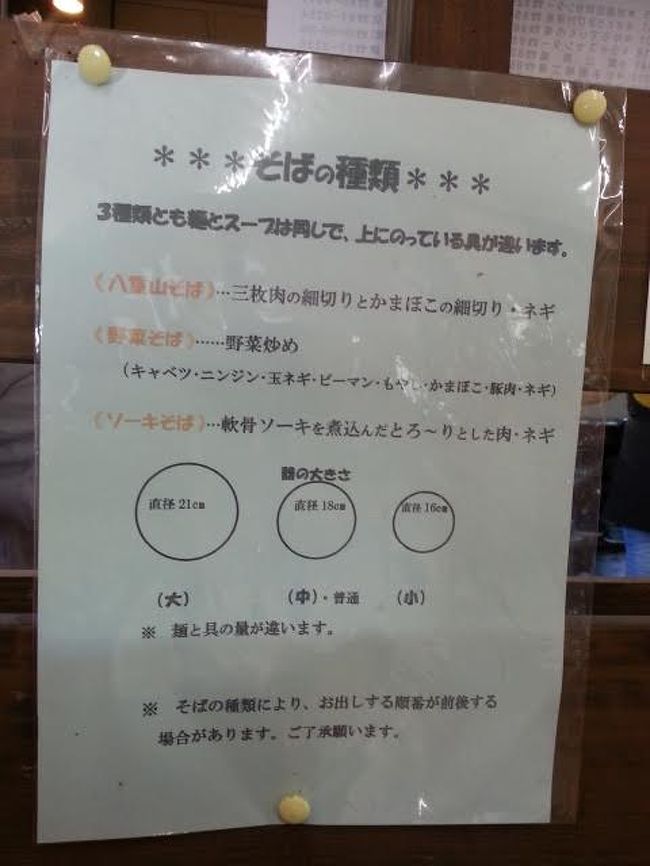 ＊＊＊そばの種類＊＊＊
3種類とも麺とスープは同じで、上にのっている具が違います。
《八重山そば》…三枚肉の細切りとかまぼこの細切り・ネギ
《野菜そば》……野菜炒め
（キャベツ・ニンジン・玉ネギ・ピーマン・もやし・かまぼこ・豚肉・ネギ）
《ソーキそば》…軟骨ソーキを煮込んだとろ～りとした肉・ネギ
器の大きさ
直径21cm 直径18cm 直径16cm
（大） （中）・普通 （小）
※ 麺と具の量が違います。
※ そばの種類により、お出しする順番が前後する
場合があります。ご了承願います。